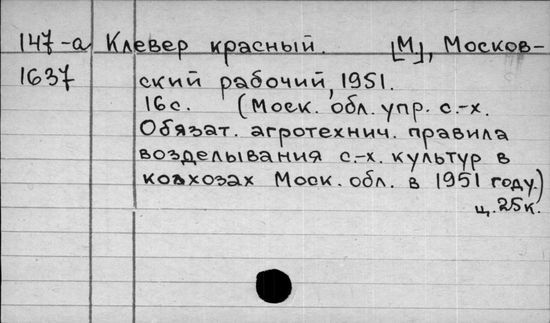 147-а Клевер красный. [М], Москов-
1637 ский рабочий, 1951.
16 с. (Моск. обл. упр. с.-х.
Обязат. агротехнич. правила
возделывания с.-х. культур в
колхозах Моск. обл. в 1951 году.)
ц. 25к.